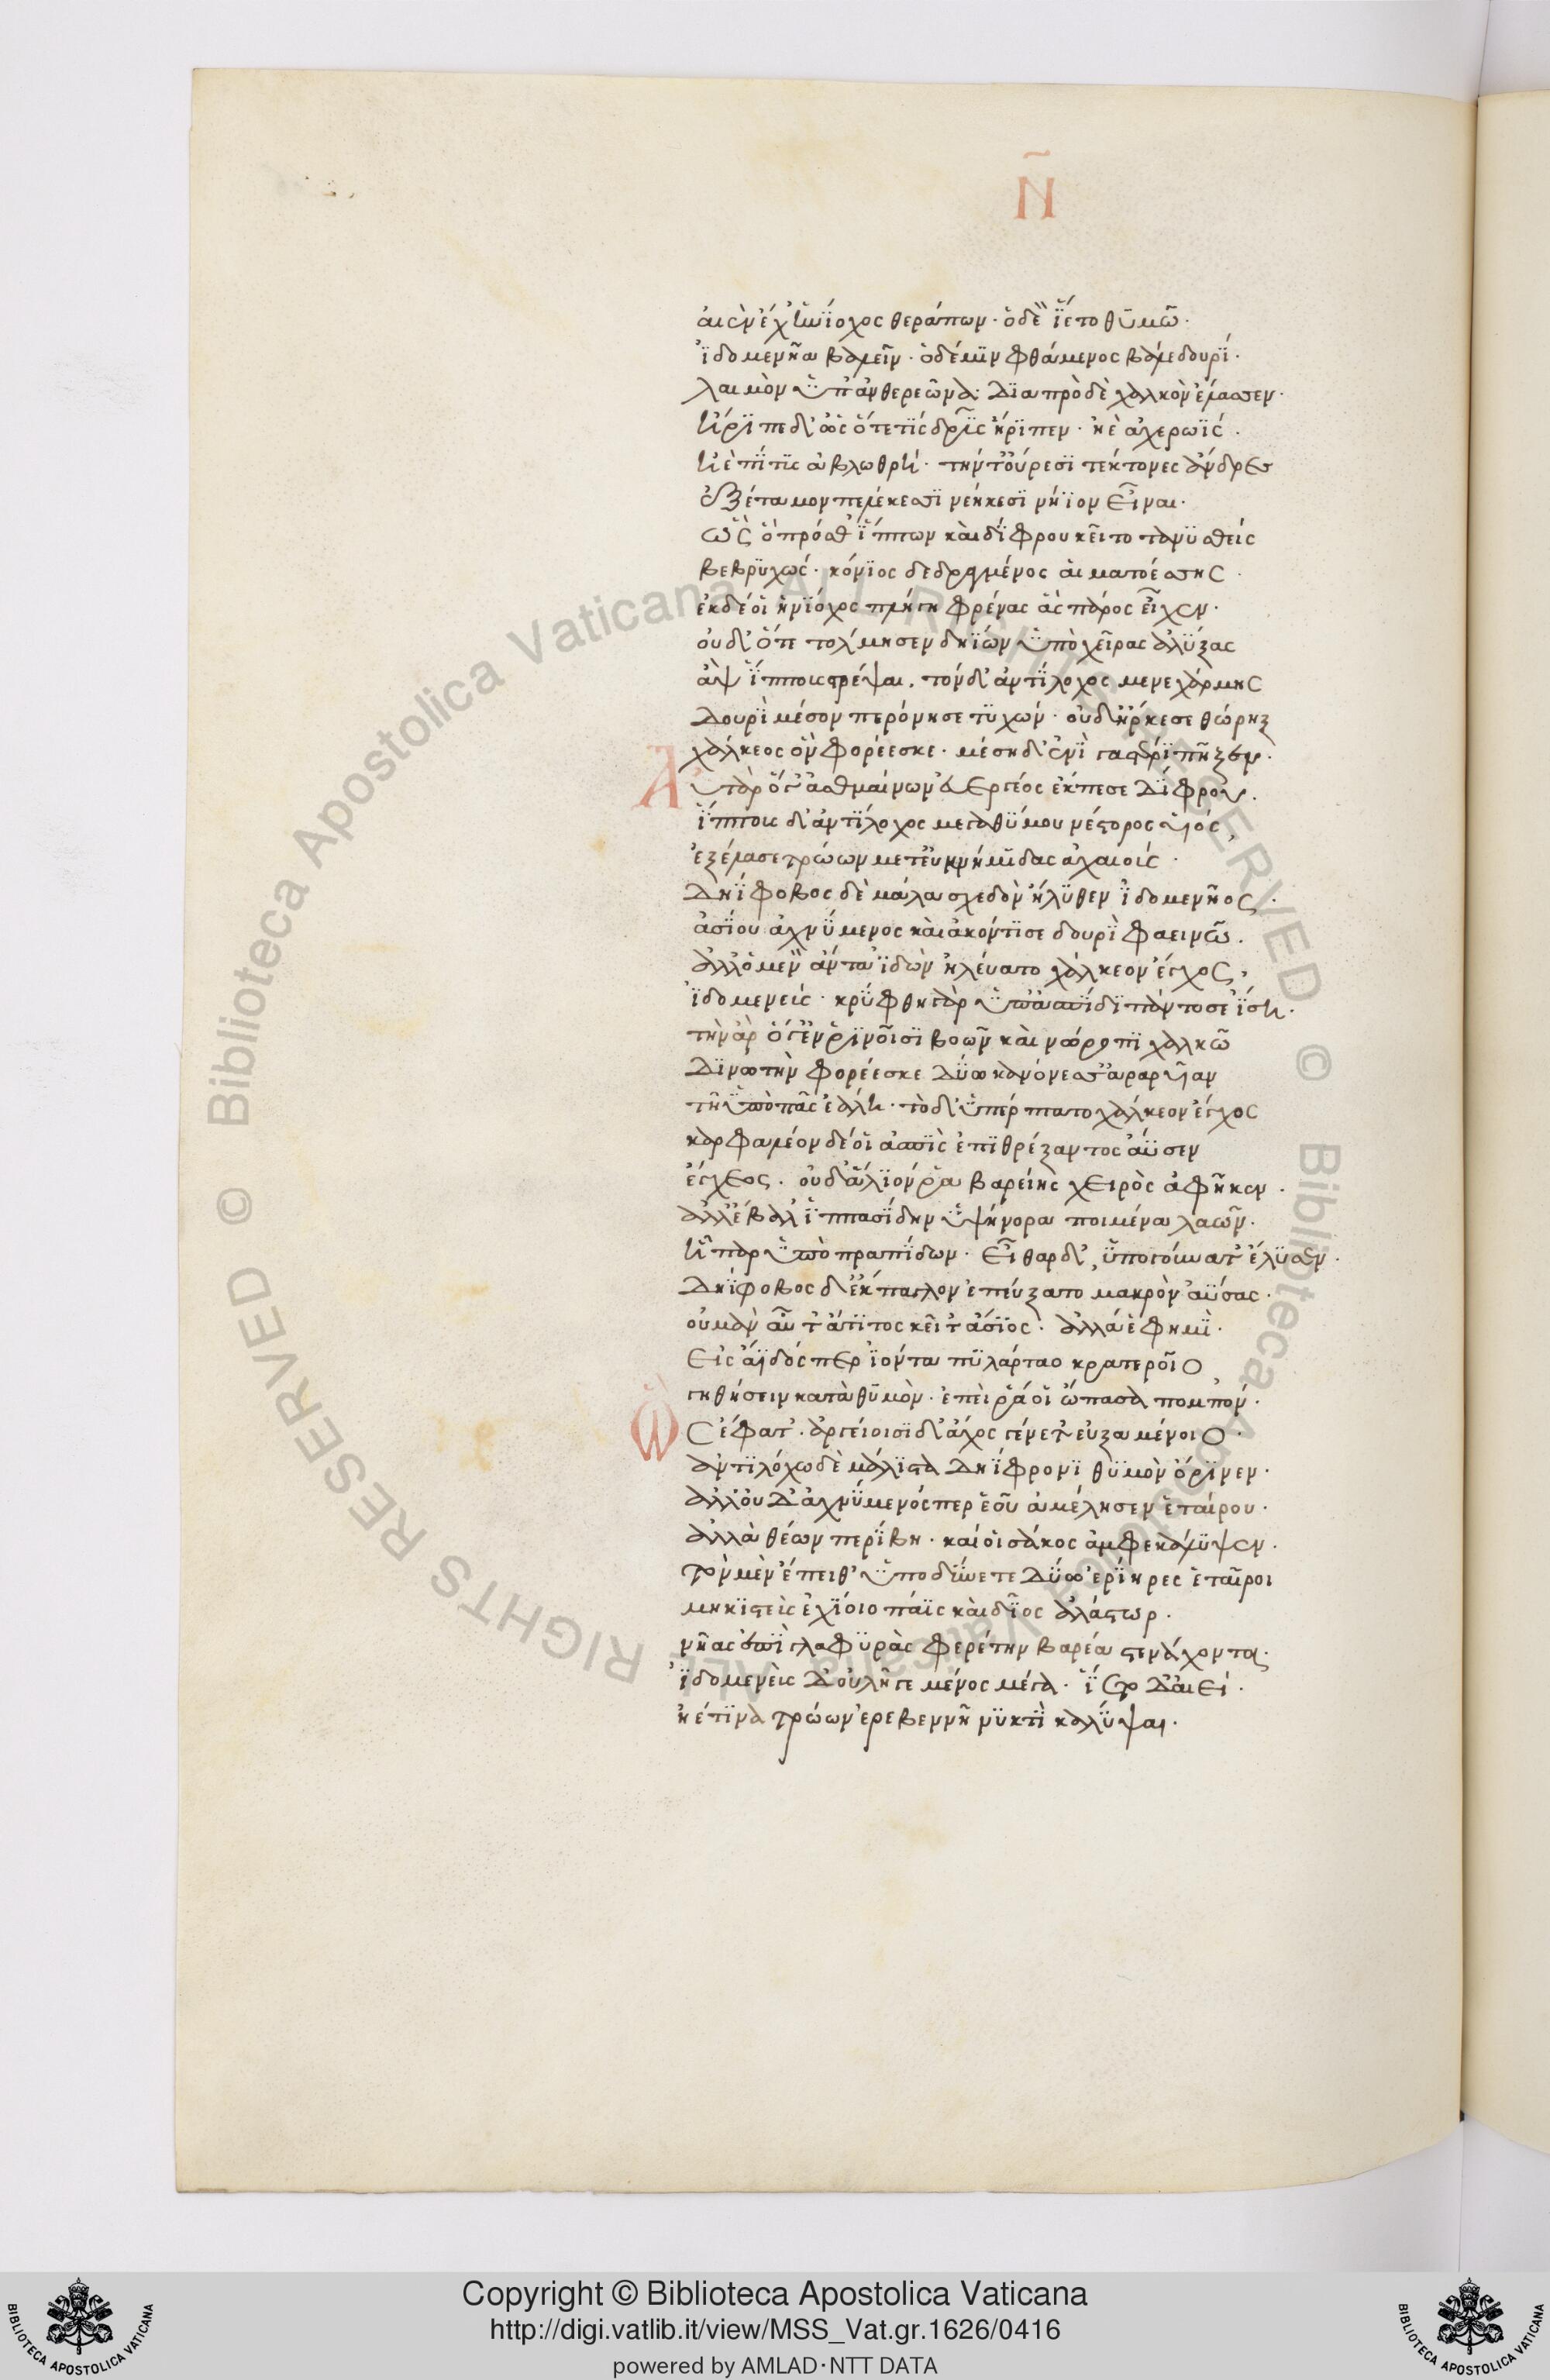 Ν
αἰὲν ἔχ' ἡνίοχος θεράπων· ὁ δὲ ἵετο θυμῷ·
ἰδομενῆα βαλεῖν· ὁ δέ μιν φθάμενος βάλε δουρί·
λαιμὸν ὑπ' ἀνθερεῶνα· διὰ πρὸ δὲ χαλκὸν ἔλασσεν·
ἤριπε δ' ὡς ὅτε τίς δρῦς ἤριπεν· ἠὲ ἀχερωΐς·
ἠὲ πίτυς βλωθρή· τήν τ' οὔρεσι τέκτονες ἄνδρες
ἐξέταμον πελέκεσσι νεήκεσι νήϊον εἶναι·
ὣς ὁ πρόσθ' ἵππων καὶ δίφρου κεῖτο τανυσθείς
βεβρυχώς· κόνιος δεδραγμένος αἱματοέσσης·
ἐκ δέ οἱ ἡνίοχος πλήγη φρένας ἃς πάρος εἶχεν·
οὐδ' ὅτε τόλμησεν δηΐων ὑπὸ χεῖρας ἀλύξας
ἂψ ἵππους στρέψαι. τὸν δ' ἀντίλοχος μενεχάρμης
δουρὶ μέσον περόνησε τυχών· οὐδ' ἤρκεσε θώρηξ
χάλκεος ὃν φορέεσκε· μέση δ' ἐνὶ γαστέρι πῆξεν·
Αὐτὰρ ὅγ' ἀσθμαίνων εὐεργέος ἔκπεσε δίφρου.
ἵππους δ' ἀντίλοχος μεγαθύμου νέστορος υἱός,
ἐξέλασε τρώων μετ' εὐκνήμιδας ἀχαιούς·
Δηΐφοβος δὲ μάλα σχεδὸν ἤλυθεν ἰδομενῆος·
ἀσίου ἀχνύμενος καὶ ἀκόντισε δουρὶ φαεινῷ.
ἀλλ' ὁ μὲν ἄντα ἰδὼν ἠλεύατο χάλκεον ἔγχος,
ἰδομενεύς· κρύφθη γὰρ ὑπ' ἀσπίδι πάντοσε ἴση·
τὴν ἄρ' ὅγ' ἐν ῥινοῖσι βοῶν καὶ νώροπι χαλκῷ
δινωτὴν φορέεσκε δύω κανόνεσσ' ἀραρυῖαν
τῇ ὑπὸ πᾶς ἐάλη· τὸ δ' ὑπέρπτατο χάλκεον ἔγχος
καρφαλέον δέ οἱ ἀσπὶς ἐπιθρέξαντος ἄϋσεν
ἔγχεος· οὐδ' ἅλιόν ῥα βαρείης χειρὸς ἀφῆκεν·
ἀλλ' ἔβαλ' ἱππασίδην ὑψήνορα ποιμένα λαῶν·
ἧπαρ ὑπὸ πραπίδων· εἶθαρ δ', ὑπὸ γούνατ' ἔλυσεν·
Δηΐφοβος δ' ἔκπαγλον ἐπεύξατο μακρὸν ἀΰσας·
οὐ μὰν αὖτ' ἄτιτος κεῖτ' ἄσιος· ἀλλά ἑ φημὶ·
Εἰς ἄϊδός περ ἰόντα πυλάρταο κρατεροῖο
γηθήσειν κατὰ θυμὸν· ἐπεὶ ῥά οἱ ὤπασα πομπόν·
Ὣς ἔφατ'· ἀργείοισι δ' ἄχος γένετ' εὐξαμένοιο·
ἀντιλόχω δὲ μάλιστα δηΐφρονι θυμὸν ὄρινεν·
ἀλλ' οὐδ' ἀχνύμενός περ ἑοῦ ἀμέλησεν ἑταίρου·
ἀλλὰ θέων περίβη· καί οἱ σάκος ἀμφεκάλυψεν·
τὸν μὲν ἔπειθ' ὑποδύωετε δύω ἐρίηρες ἑταῖροι
μηκιστεὺς ἐχίοιο πάϊς καὶ δῖος ἀλάστωρ·
νῆας ἐπὶ γλαφυρὰς φερέτην βαρέα στενάχοντα·
ἰδομενεὺς δ' οὐ λῆγε μένος μέγα· ἵετο δ' αἰεί·
ἠέ τινα τρώων ἐρεβεννῇ νυκτὶ καλύψαι·
Copyright © Biblioteca Apostolica Vaticana
http://digi.vatlib.it/view/MSS_Vat.gr.1626/0416
powered by AMLAD·NTT DATA